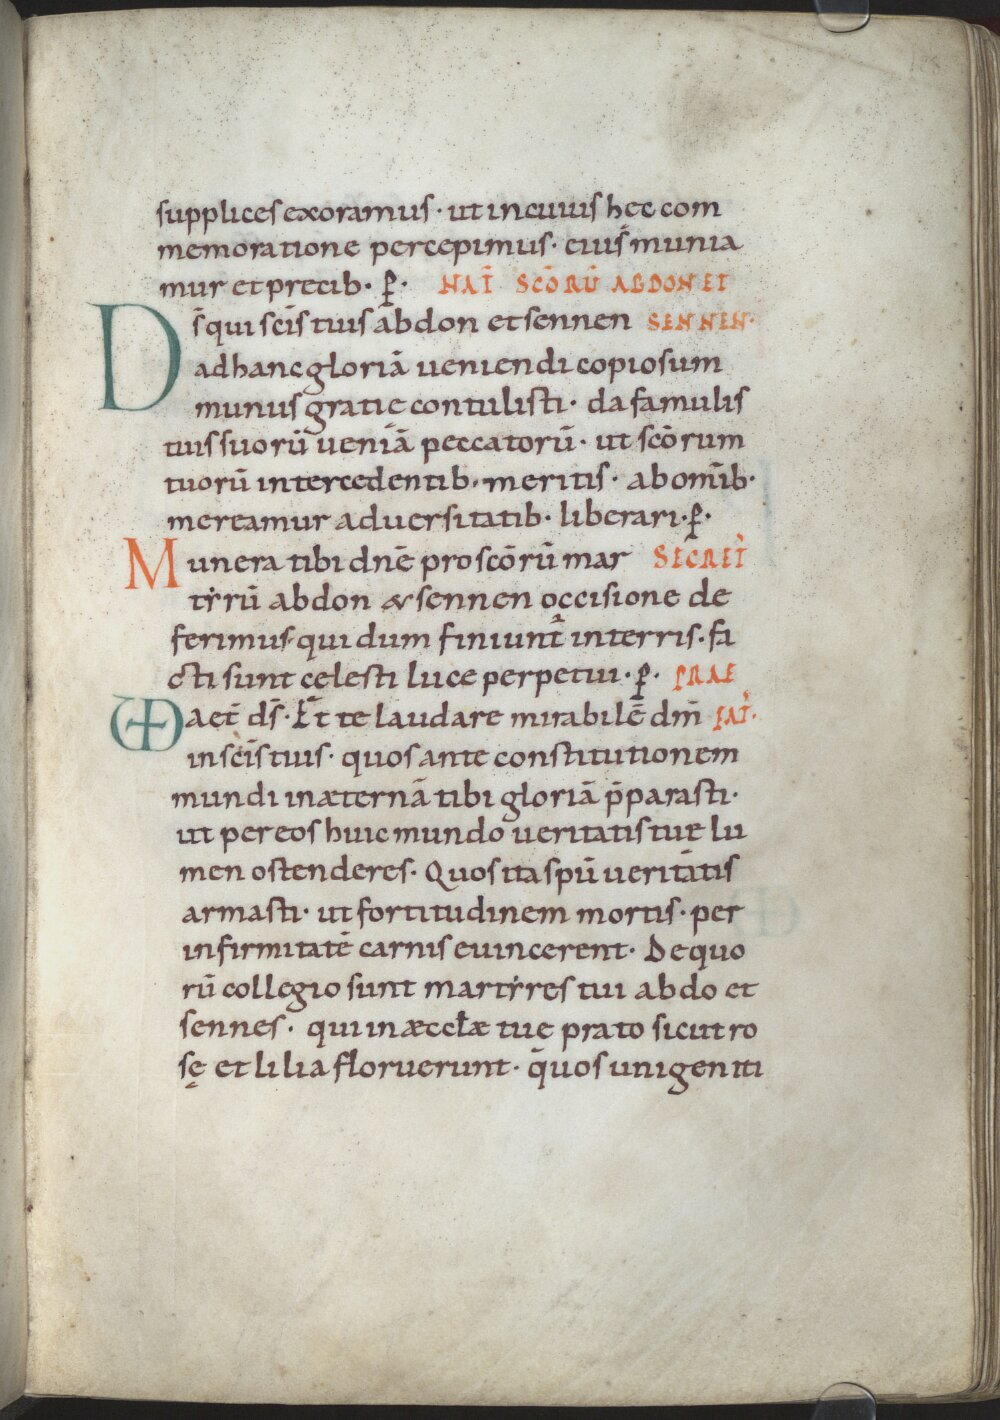 supplices exoramus · ut in cuuius hec com
memoratione percepimus · eius munia
mur et precib · p̄ · NAT̄ SCŌRŪ ABDON ET
D s̄ qui scīs tuis abdon et sennen SENNEN ·
ad hanc gloriā ueniendi copiosum
munus gratie contulisti · da famulis
tuis suorū ueniā peccatorū · ut scōrum
tuorū intercedentib · meritis · ab om̄ib ·
mereamur aduersitatib · liberari · p̄ ·
Munera tibi dnē pro scōrū mar SECRET̄
tẏrū abdon & sennen occisione de
ferimus · qui dum finiunt̄ in terris · fa
cti sunt celesti luce perpetui · p̄ · PRAE
VD aet̄ ds̄ · Et te laudare mirabilē dm̄ FAT̄ ·
in scīs tuis · quos ante constitutionem
mundi in æternā tibi gloriā p̄parasti ·
ut per eos huic mundo ueritatis tue lu
men ostenderes · Quos ita spū ueritatis
armasti · ut fortitudinem mortis · per
infirmitatē carnis euincerent · De quo
rū collegio sunt martẏres tui abdo et
sennes · qui in æccłæ tue prato sicut ro
sę et lilia floruerunt · q̄uos unigeniti